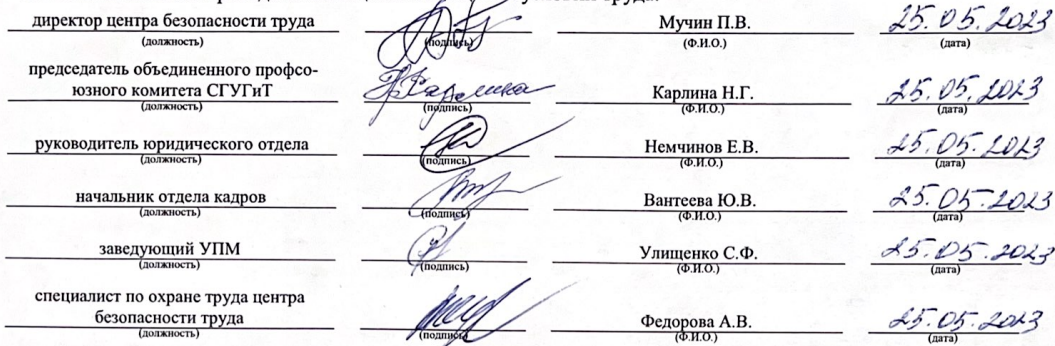 директор центра безопасности труда Мучин П.В. 25.05.2023
(должность) (подпись) (Ф.И.О.) (дата)
председатель объединенного профсо-
юзного комитета СГУГиТ Карлина Н.Г. 25.05.2023
(должность) (подпись) (Ф.И.О.) (дата)
руководитель юридического отдела Немчинов Е.В. 25.05.2023
(должность) (подпись) (Ф.И.О.) (дата)
начальник отдела кадров Вантеева Ю.В. 25.05.2023
(должность) (подпись) (Ф.И.О.) (дата)
заведующий УПМ Улищенко С.Ф. 25.05.2023
(должность) (подпись) (Ф.И.О.) (дата)
специалист по охране труда центра
безопасности труда Федорова А.В. 25.05.2023
(должность) (подпись) (Ф.И.О.) (дата)